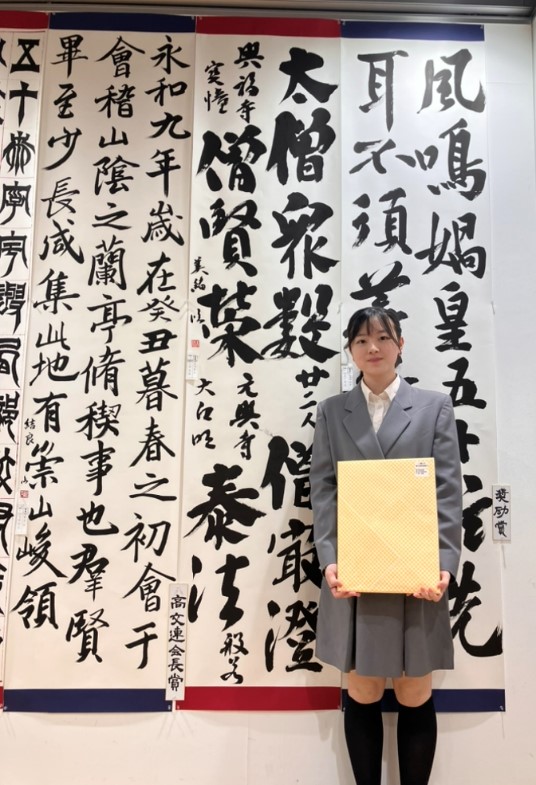 風鳴媧皇五十弦洗
耳不須
奨励賞
太僧眾數廿二人僧嚴澄
興福寺
僧賢榮
元興寺
泰法
般若
高文連会長賞
永和九年歳在癸丑暮春之初會于
會稽山陰之蘭亭脩稧事也羣賢
畢至少長咸集此地有崇山峻領
五十